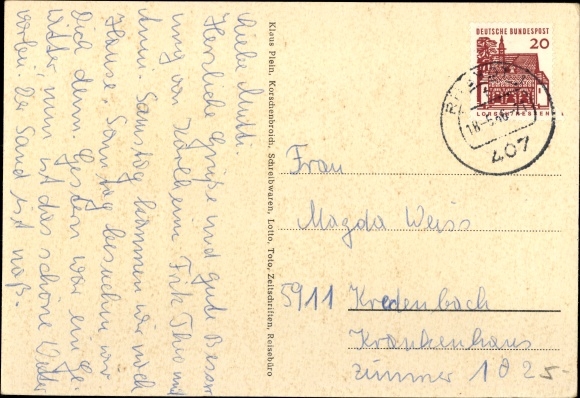 Liebe Mutti
Herzliche Grüße und gute Besser
ung von Karlheinz Fritz Thea und
Anni. Samstag kommen wir nach
Hause. Sonntag besuchen wir
Dich dann. Gestern war ein Ge-
witter, nun ist das schöne Wetter
vorbei. Der Sand ist naß.
Klaus Plein, Korschenbroich, Schreibwaren, Lotto, Toto, Zeitschriften, Reisebüro
DEUTSCHE BUNDESPOST
20
LORSCH/HESSEN
407
Frau
Magda Weiss
5911 Kredenbach
Krankenhaus
Zimmer 102
5-